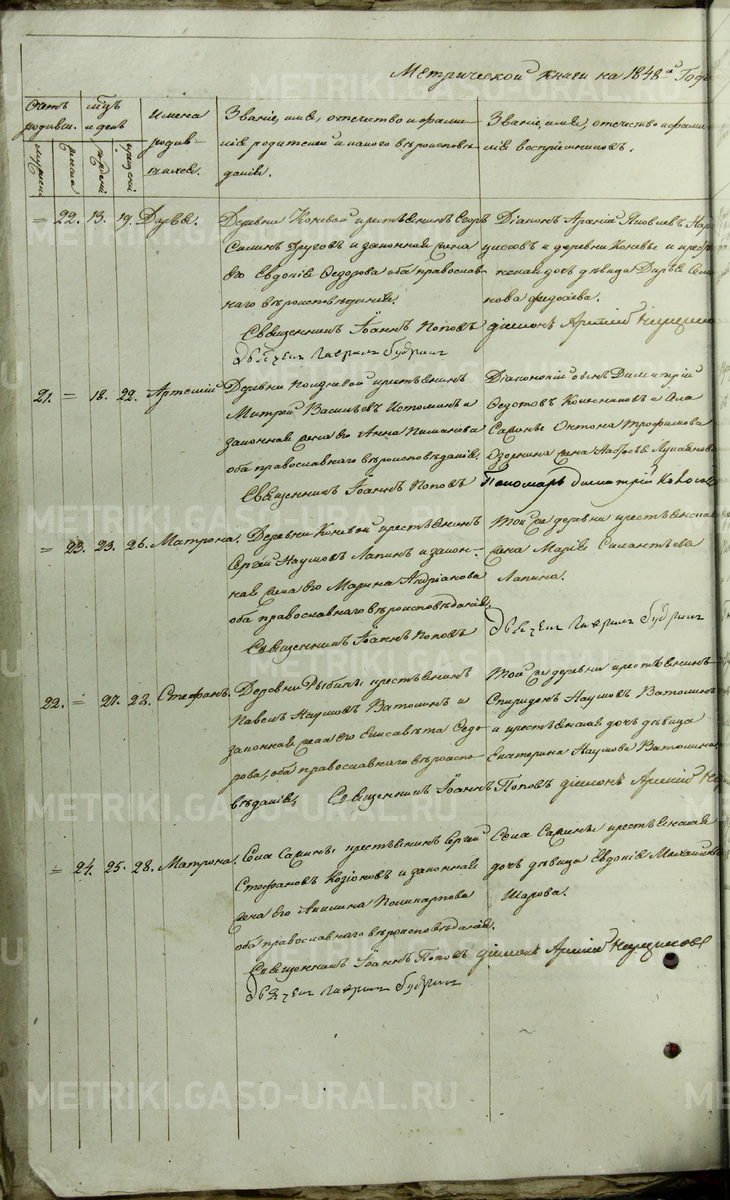 Метрической книги на 1848й Годъ
Счетъ родивш. мужеска женска
М-цъ и день рожденія крещенія
Имена родившихся.
Званіе, имя, отечество и фамилія родителей и какого вѣроисповѣданія.
Званіе, имя, отечество и фамилія воспріемниковъ.
= 22. 13. 19. Дарья.
Деревни Коневой крестьянинъ Егоръ
Силинъ Друговъ и законная жена
его Евдокія Ѳедорова оба православ-
наго вѣроисповѣданія.
Священникъ Іоаннъ Поповъ
Діаконъ Арсеній Яковлевъ
и деревни Коневы
дочь дѣвица Дарья
діаконъ Арсеній
21. = 18. 22. Артемій
Деревни крестьянинъ
Митрей Васильевъ Истоминъ и
законная жена его Анна
оба православнаго вѣроисповѣданія.
Священникъ Іоаннъ Поповъ
Діаконскій сынъ Димитрій
Ѳедотовъ Колесниковъ и села
Сарины Антона Трофимова
жена
Пономарь Димитрій
= 23. 23. 26. Матрона.
Деревни Коневой крестьянинъ
Сергей Наумовъ Лапинъ и закон-
ная жена его Марина Андріанова
оба православнаго вѣроисповѣданія.
Священникъ Іоаннъ Поповъ
Той же деревни крестьянская
жена Марія Силантьева
Лапина.
22. = 27. 28. Стефанъ.
Деревни Рыбины крестьянинъ
Павелъ Наумовъ Ватолинъ и
законная жена его Елисавета Ѳедо-
рова, оба православнаго вѣроиспо-
вѣданія. Священникъ Іоаннъ Поповъ
Той же деревни крестьянинъ
Спиридонъ Наумовъ Ватолинъ
и крестьянская дочь дѣвица
Екатерина Наумова Ватолина.
діаконъ Арсеній
= 24. 25. 28. Матрона.
Села Сарины крестьянинъ Сергей
Стефановъ Козіоновъ и законная
жена его Акилина Поликарпова
оба православнаго вѣроисповѣданія.
Священникъ Іоаннъ Поповъ
Села Сарины крестьянская
дочь дѣвица Евдокія Михайлова
Шарова.
діаконъ Арсеній
METRIKI.GASO-URAL.RU